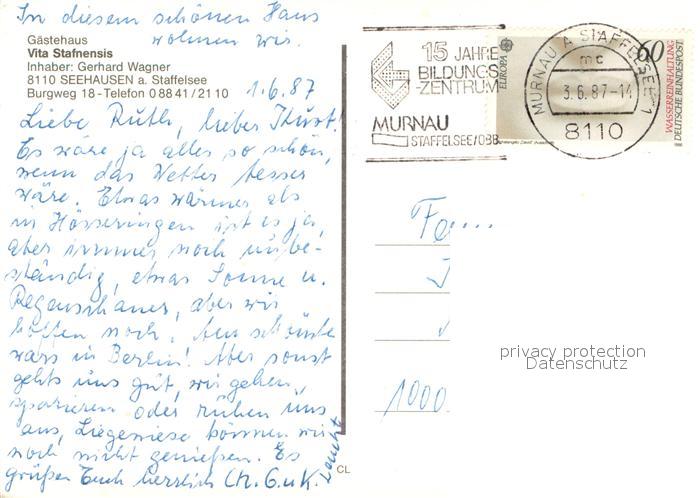 In diesem schönen Haus
wohnen wir.
Gästehaus
Vita Stafnensis
Inhaber: Gerhard Wagner
8110 SEEHAUSEN a. Staffelsee
Burgweg 18 - Telefon 0 88 41 / 21 10
1.6.87
Liebe Ruth, lieber Horst!
Es wäre ja alles so schön,
wenn das Wetter besser
wäre. Etwas wärmer als
in ist es ja,
aber immer noch unbe-
ständig, etwas Sonne u.
Regenschauer, aber wir
hoffen noch. Am schönste
wars in Berlin! Aber sonst
gehts uns gut, wir gehen
spazieren oder ruhen uns
aus, Liegewiese können wir
noch nicht genießen. Es
grüßen Euch herzlich Ch. G. u. K.
CL
15 JAHRE
BILDUNGS
-ZENTRUM
MURNAU
STAFFELSEE/OBB
MURNAU A STAFFELSEE 1
mc
3.6.87-14
8110
EUROPA
60
WASSERREINHALTUNG
DEUTSCHE BUNDESPOST
Fa....
1000
privacy protection
Datenschutz